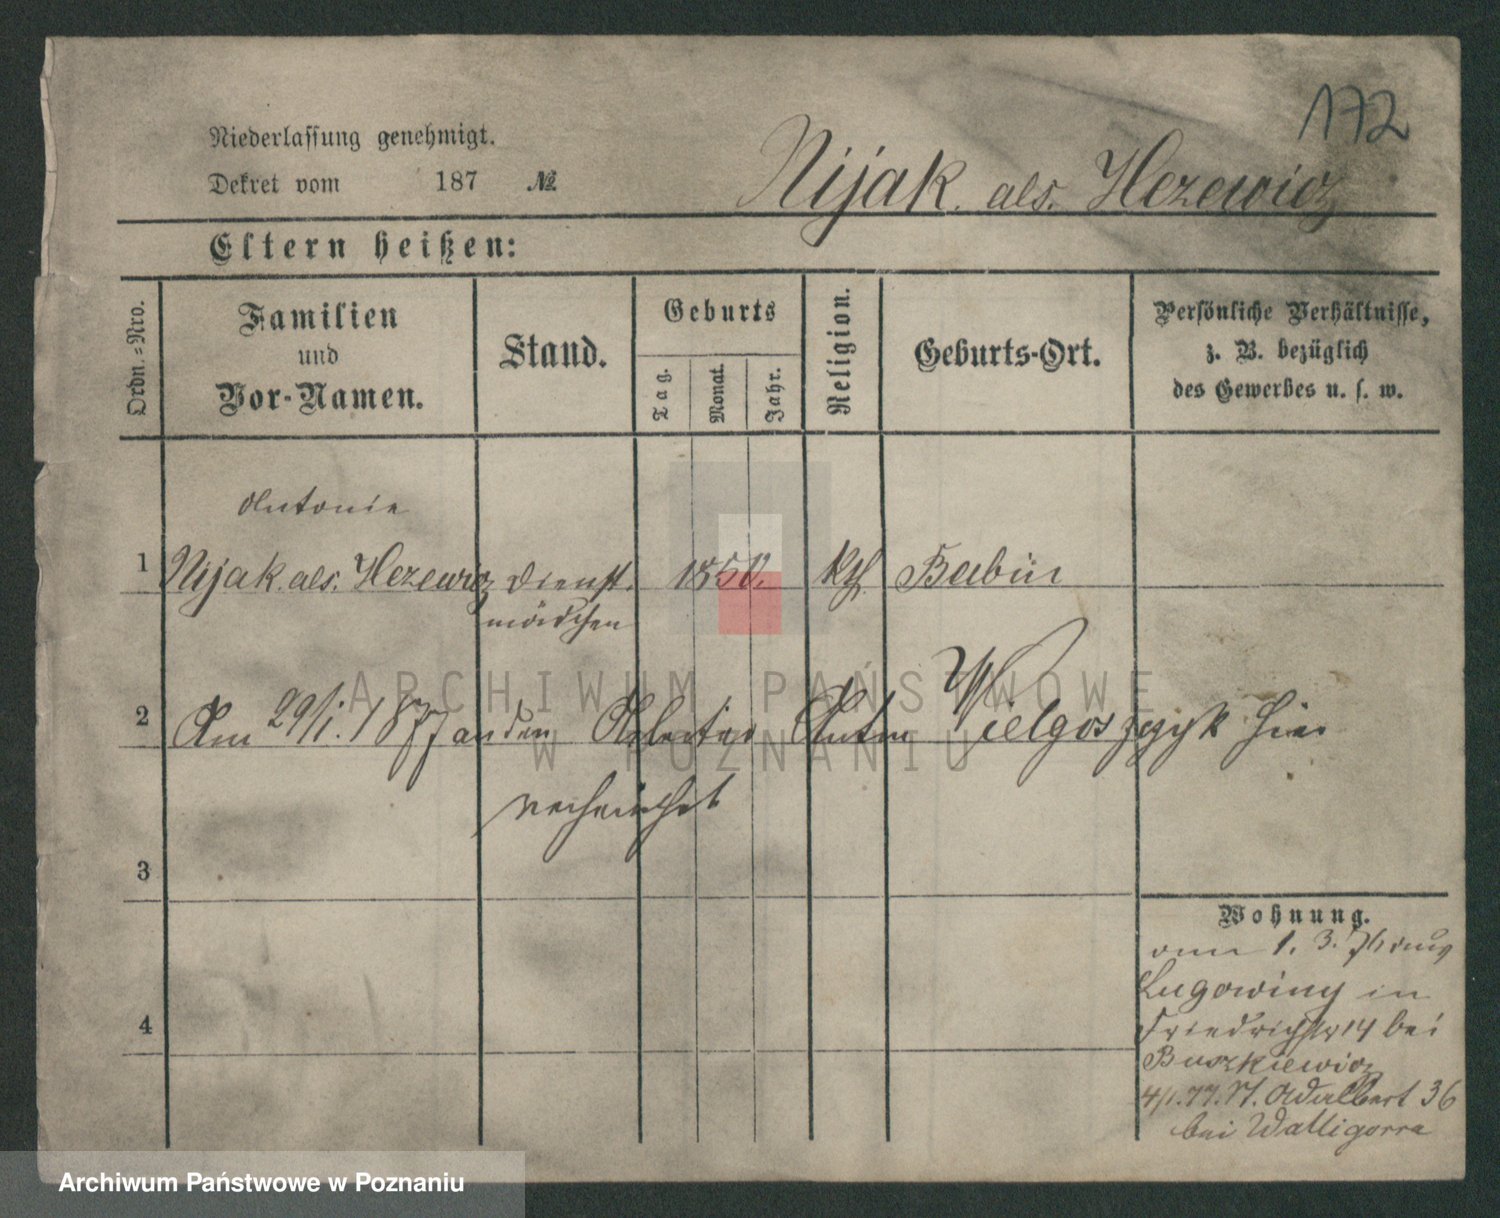 172
Niederlassung genehmigt.
Dekret vom 187 №
Nijak. als. Hezewicz
Eltern heißen:
Ordn.-Nro.
Familien
und
Vor-Namen.
Stand.
Geburts
Tag.
Monat.
Jahr.
Religion.
Geburts-Ort.
Persönliche Verhältnisse,
z. B. bezüglich
des Gewerbes u. s. w.
Antonie
1 Nijak. als. Hezewicz Dienst- 1850. kth Babin
mädchen
2 Am 29/1. 1877 an den Arbeiter Anton Wielgoszczyk hier
verheirathet
3
4
Wohnung.
am 1. 3. 76
Lugowiny in
Friedrichstr 14 bei
Buszkiewicz
4/1. 77. St. Adalbert 36
bei Walligorra
ARCHIWUM PAŃSTWOWE
W POZNANIU
Archiwum Państwowe w Poznaniu